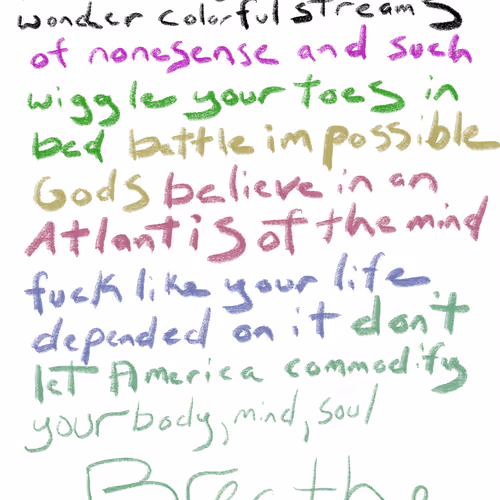 wonder colorful streams
of nonesense and such
wiggle your toes in
bed battle impossible
Gods believe in an
Atlantis of the mind
fuck like your life
depended on it don't
let America commodify
your body, mind, soul
Breathe